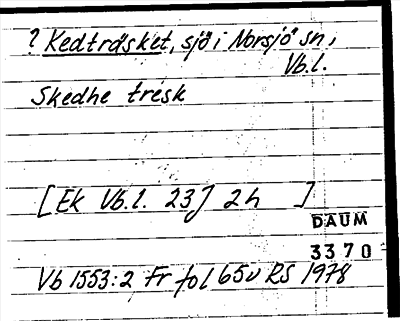 ? Kedträsket, sjö i Norsjö sn,
Vb.l.
Skedhe trésk
[Ek Vb.l. 23] 2h ]
DAUM
3370
Vb 1553:2 Fr fol 65v RS 1978